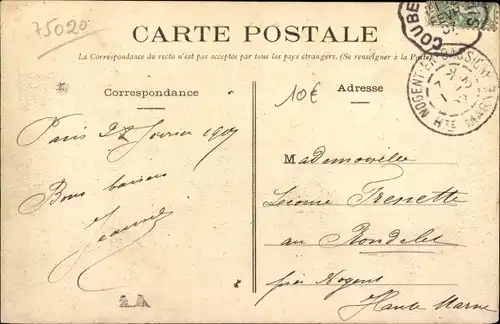 75020
CARTE POSTALE
La Correspondance du recto n'est pas acceptée par tous les pays étrangers. (Se renseigner à la Poste)
Correspondance
10€
Adresse
NOGENT-EN-BASSIGNY
HTE MARNE
Paris 22 fevrier 1907
Bons baisers
Jeanne
Mademoiselle
Leonie Trenette
au
près Nogent
Haute Marne